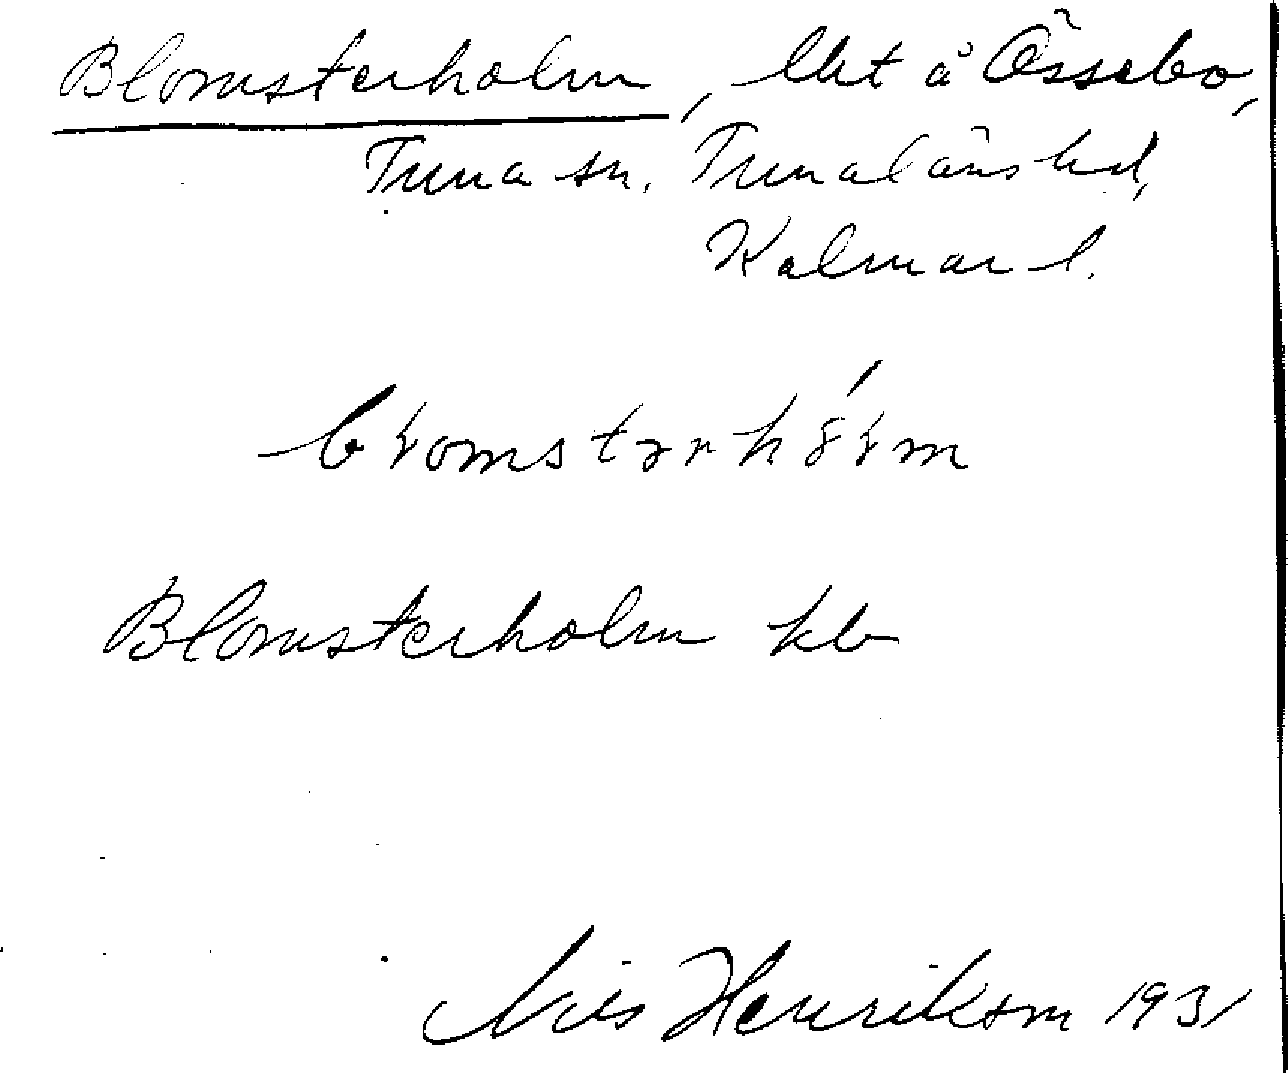 Blomsterholm, lht å Össebo,
Tuna sn. Tunaläns hd,
Kalmar l.
Blomsterholm kb
Nils Henriksson 1931